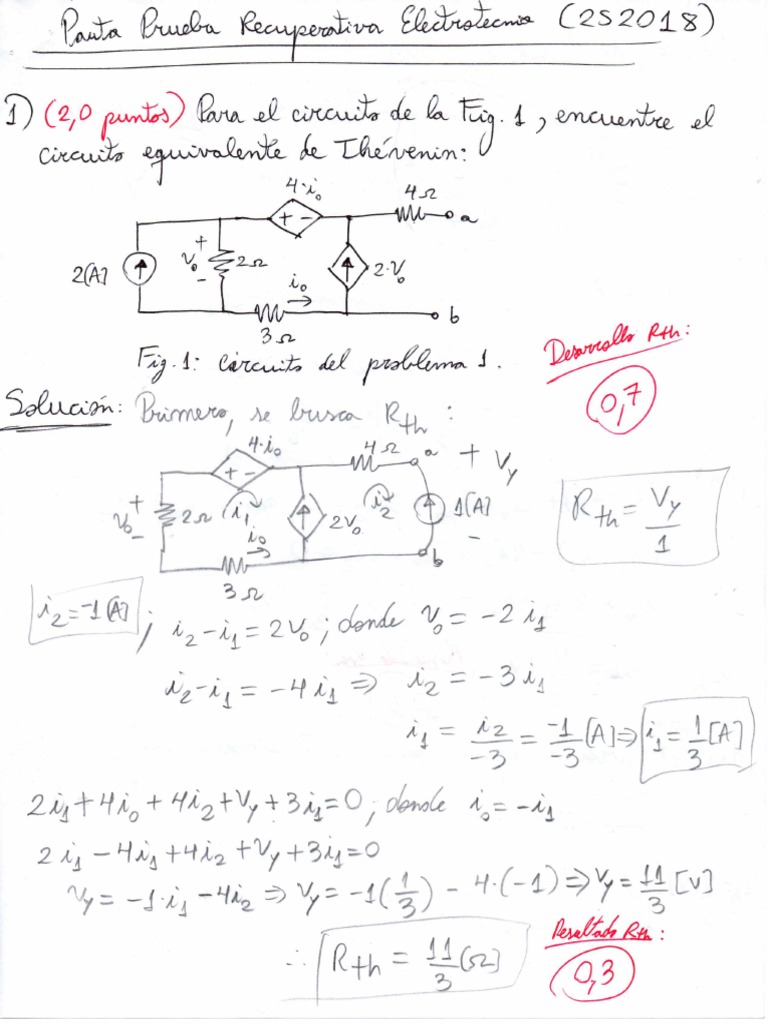 Pauta Prueba Recuperativa Electrotecnia (2S2018)
1) (2,0 puntos) Para el circuito de la Fig. 1, encuentre el
circuito equivalente de Thévenin:
4·i₀
4Ω
+ -
a
2[A]
+
V₀
-
2Ω
2·V₀
i₀
b
3Ω
Fig. 1: Circuito del problema 1.
Desarrollo Rth:
0,7
Solución: Primero, se busca Rth:
4·i₀
4Ω
a
+ Vy
+ -
+
V₀
-
2Ω
i₁
2V₀
i₂
1[A]
-
i₀
b
3Ω
Rth = Vy/1
i₂=-1[A] ; i₂-i₁ = 2V₀ ; donde V₀ = -2 i₁
i₂-i₁ = -4i₁ ⇒ i₂ = -3 i₁
i₁ = i₂/-3 = -1/-3 [A] ⇒ i₁ = 1/3 [A]
2i₁+4i₀+4i₂+Vy+3i₁=0 ; donde i₀=-i₁
2i₁-4i₁+4i₂+Vy+3i₁=0
Vy = -1·i₁-4i₂ ⇒ Vy = -1(1/3) - 4·(-1) ⇒ Vy = 11/3 [V]
∴ Rth = 11/3 [Ω]
Resultado Rth:
0,3